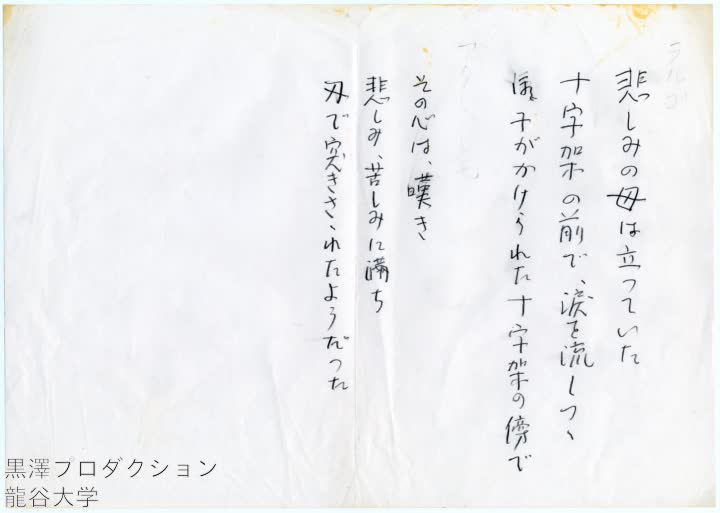 ラルゴ
悲しみの母は立っていた
十字架の前で、涙を流しつゝ
御子がかけられた十字架の傍で
その心は、嘆き
悲しみ、苦しみに満ち
刃で突きさゝれたようだった
黒澤プロダクション
龍谷大学